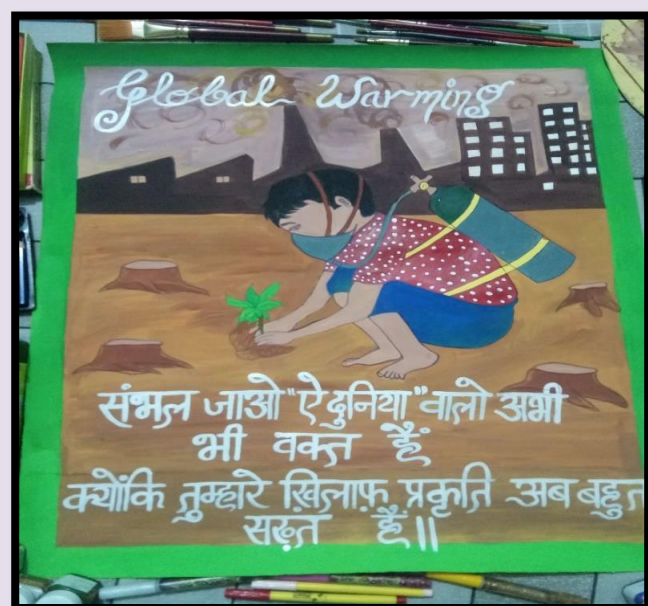 Global Warming
संभल जाओ "ऐ दुनिया" वालो अभी
भी वक्त हैं
क्योंकि तुम्हारे ख़िलाफ़ प्रकृति अब बहुत
सख़्त हैं॥